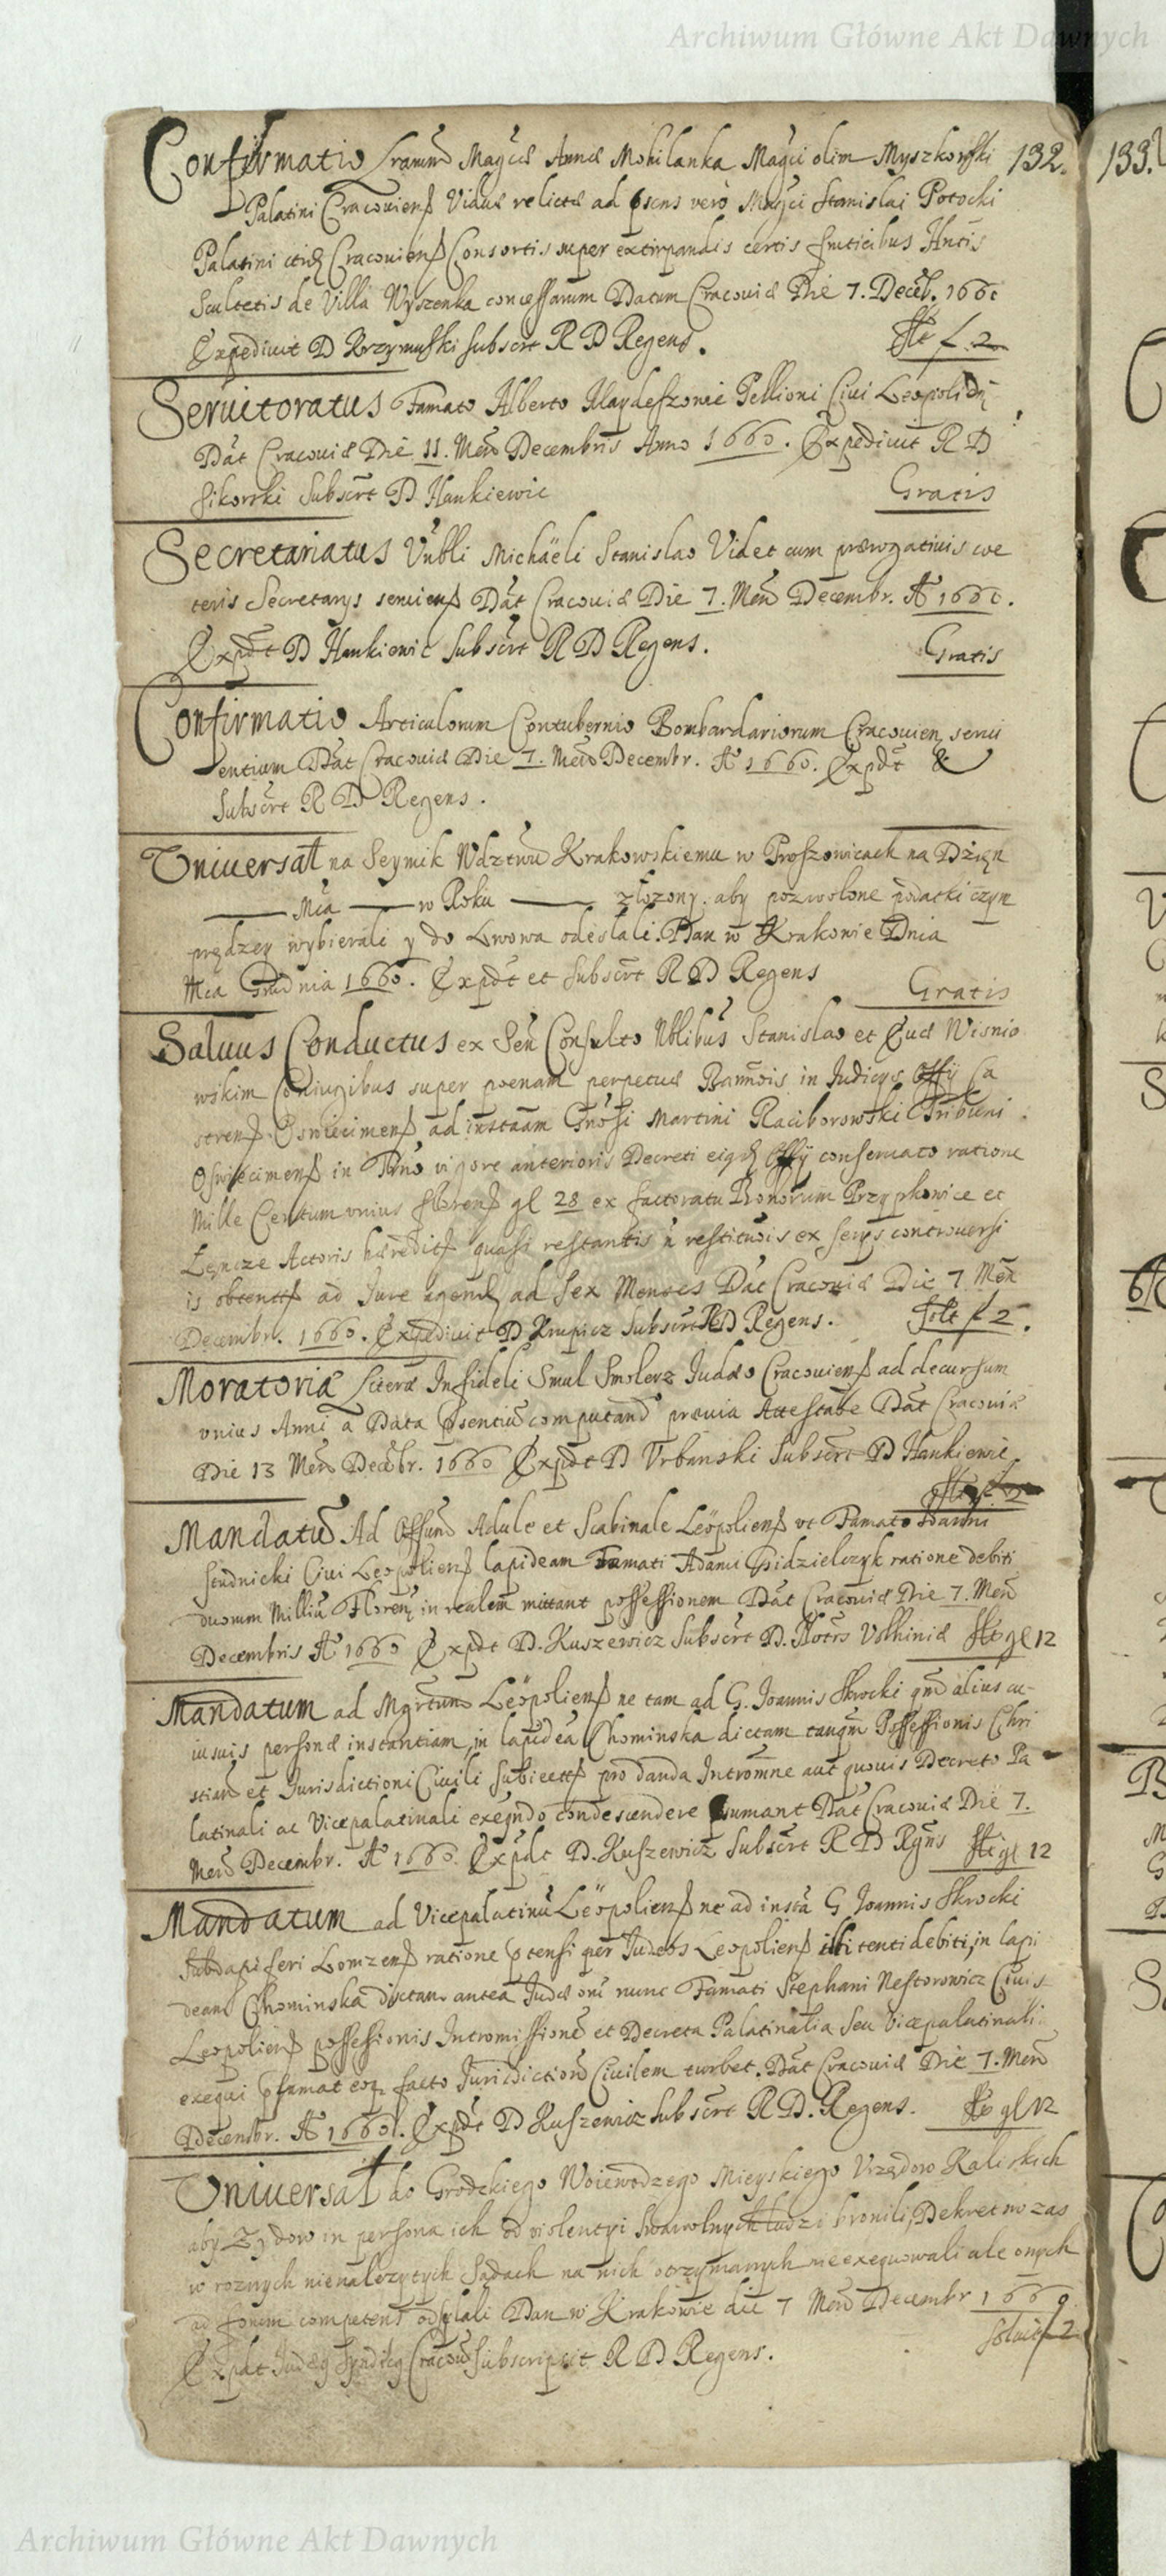 Archiwum Główne Akt Dawnych
132. 133.
Confirmatio Lrarum Magcæ Annæ Mohilanka Magci olim Myszkowski
Palatini Cracovien̄ Viduæ relictæ ad pn̄s vero Magci Stanislai Potocki
Palatini itid Cracovien̄ Consortis super extirpandis certis fruticibus Hntis
Scultetis de Villa Wyszenka concessarum Datum Cracoviæ Die 7. Deceb. 1660
Expedivit D Krzymuski subscrt R D Regens. flt f. 2
Servitoratus Famato Alberto Maydeszowic Pellioni Civi Leopolien̄
Dat Cracoviæ Die 11. Men Decembris Anno 1660. Expedivit R D
Sikorski Subscrt D Hankiewic Gratis
Secretariatus Unbli Michaëli Stanislao Videt cum prærogativis cæ
teris Secretarys servien̄ Dat Cracoviæ Die 7. Men Decembr. A 1660.
Expdt D Hankiewic Subscrt R D Regens. Gratis
Confirmatio Articulorum Contubernio Bombardariorum Cracovien̄ servi
entium Dat Cracoviæ Die 7. Men Decembr. A 1660. Expdt &
Subscrt R D Regens.
Universał na Seymik Wdztwu Krakowskiemu w Proszowicach na Dzien
Mca w Roku złozony. aby pozwolone podatki czym
prędzey wybierali y do Lwowa odesłali. Dan w Krakowie Dnia
Mca Grudnia 1660. Expdt et subscrt R D Regens Gratis
Salvus Conductus ex Sen Consulto Nblibus Stanislao et Evæ Wisnio
wskim Coniugibus super poenam perpetuæ Bannois in Iudicys Offy Ca
stren̄ Oswiecimen̄ ad instaam Grosi Martini Raciborowski Tribuni
Oswiecimen̄ in Tmo vigore anterioris Decreti eiqd Offy conservato ratione
Mille Centum unius floren̄ gl 28 ex factoratu Bonorum Przypkowice et
Lęncze Actoris hæredit quasi restantis a restituois ex serys controversi
is obtent ad Iure agend ad Sex Menses Dat Cracoviæ Die 7 Men
Decembr. 1660. Expedivit D Krupicz Subscrt R D Regens. Solt f 2.
Moratoriæ Literæ Infideli Smul Smolerz Iudæo Cracovien̄ ad decursum
unius Anni a Data pn̄sentiu computand prævia Attestaoe Dat Cracoviæ
Die 13 Men Decebr. 1660 Expdt D Urbanski Subscrt D Hankiewic
flt f. 2
Mandatu Ad Offium Advle et Scabinale Leopolien̄ vt Famato Ioanni
Studnicki Civi Leopolien̄ lapideam Famati Adami Gidzielczyk ratione debiti
duorum Milliu Floren̄ in realem mittant possessionem Dat Cracoviæ Die 7. Men
Decembris A 1660 Expdt D. Kuszewicz Subscrt D. Notrs Volhiniæ flt gl 12
Mandatum ad Mgrtum Leopolien̄ ne tam ad G. Ioannis Skrocki qm alius cu-
iusvis personæ instantiam, in lapidea Chominska dictam tanqm Possessionis Chri
stianæ et Iurisdictioni Civili subiect pro danda Intromne aut quovis Decreto Pa
latinali ac Vicepalatinali exeqndo condescendere præsumant Dat Cracoviæ Die 7.
Men Decembr. A 1660. Expdt D. Kuszewicz Subscrt R D Rgns flt gl 12
Mandatum ad Vicepalatinu Leopolien̄ ne ad insta G Ioannis Skrocki
Subdapiferi Lomzen̄ ratione prætensi per Iudæos Leopolien̄ illi tenti debiti, in lapi
deam Chominska dictam antea Iudæoru nunc Famati Stephani Nestorowicz Civis
Leopolien̄ possessionis Intromissione et Decreta Palatinalia Seu Vicepalatinali
exequi præsumat eoq facto Iurisdictione Civilem turbet. Dat Cracoviæ Die 7. Men
Decembr. A 1660. Expdt D Kuszewicz Subscrt R D. Regens. flt gl 12
Universał do Grodzkiego Woiewodzego Mieyskiego Vrzędow Kaliskich
aby Zydow in persona ich od violentyi swawolnych ludzi bronili, Dekretow zas
w roznych nienalezytych Sądach na nich otrzymanych nie exequowali ale onych
ad forum competens odsyłali Dan w Krakowie die 7 Men Decembr 1660.
Expdt Iudæg Syndicg Cracov Subscripsit R D Regens. Solvit f 2
Archiwum Główne Akt Dawnych